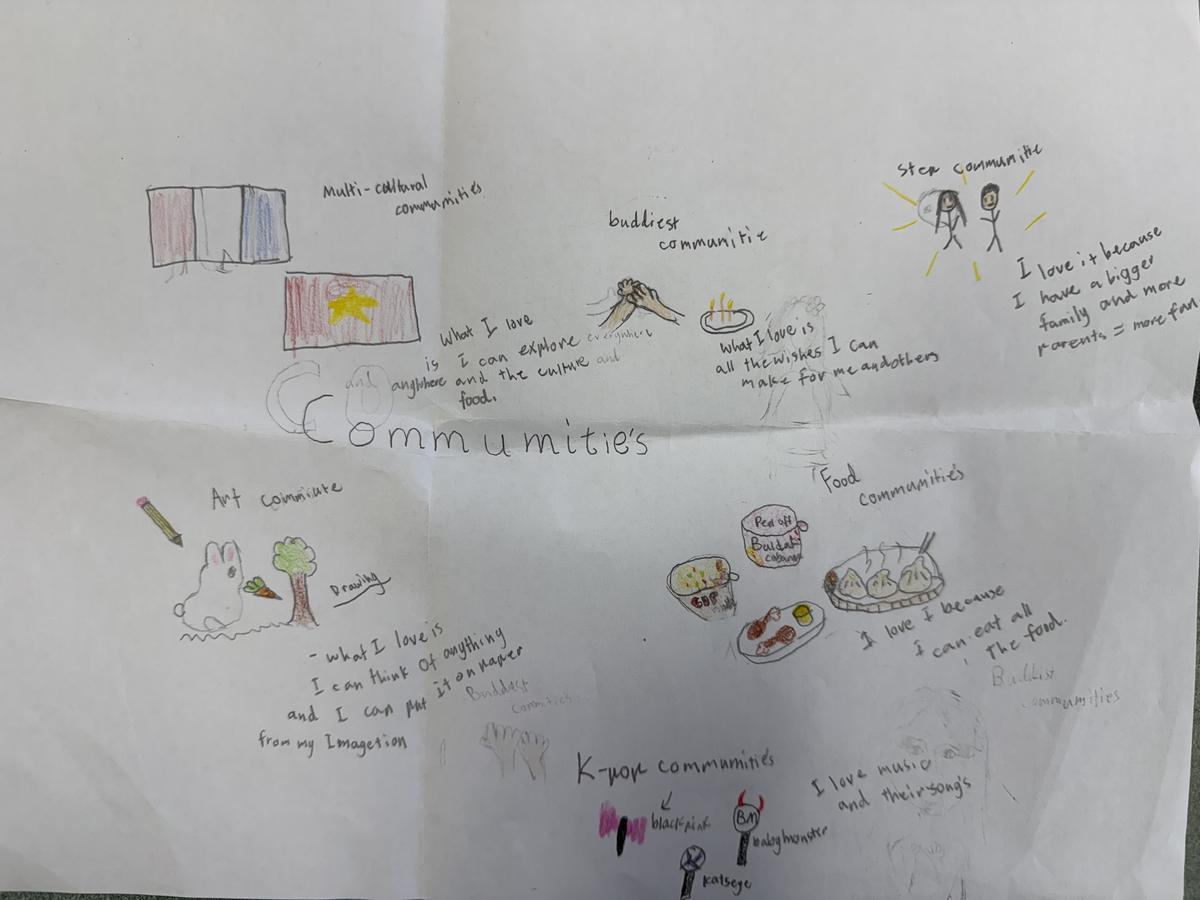 Multi-cultural
communities
What I love
is I can explore everywhere
and anywhere and the culture and
food.
buddiest
communitie
what I love is
all the wishes I can
make for me and others
Step communitie
I love it because
I have a bigger
family and more
parents = more fun
Communitie's
Art
Drawing
- what I love is
I can think of anything
and I can put it on paper
from my Imagetion
Food
communitie's
Peel off
CUP
I love i because
I can eat all
The food.
Buddist
communities
Buddist
K-pop communitie's
blackpink
BM
babymonster
katseye
I love music
and their song's